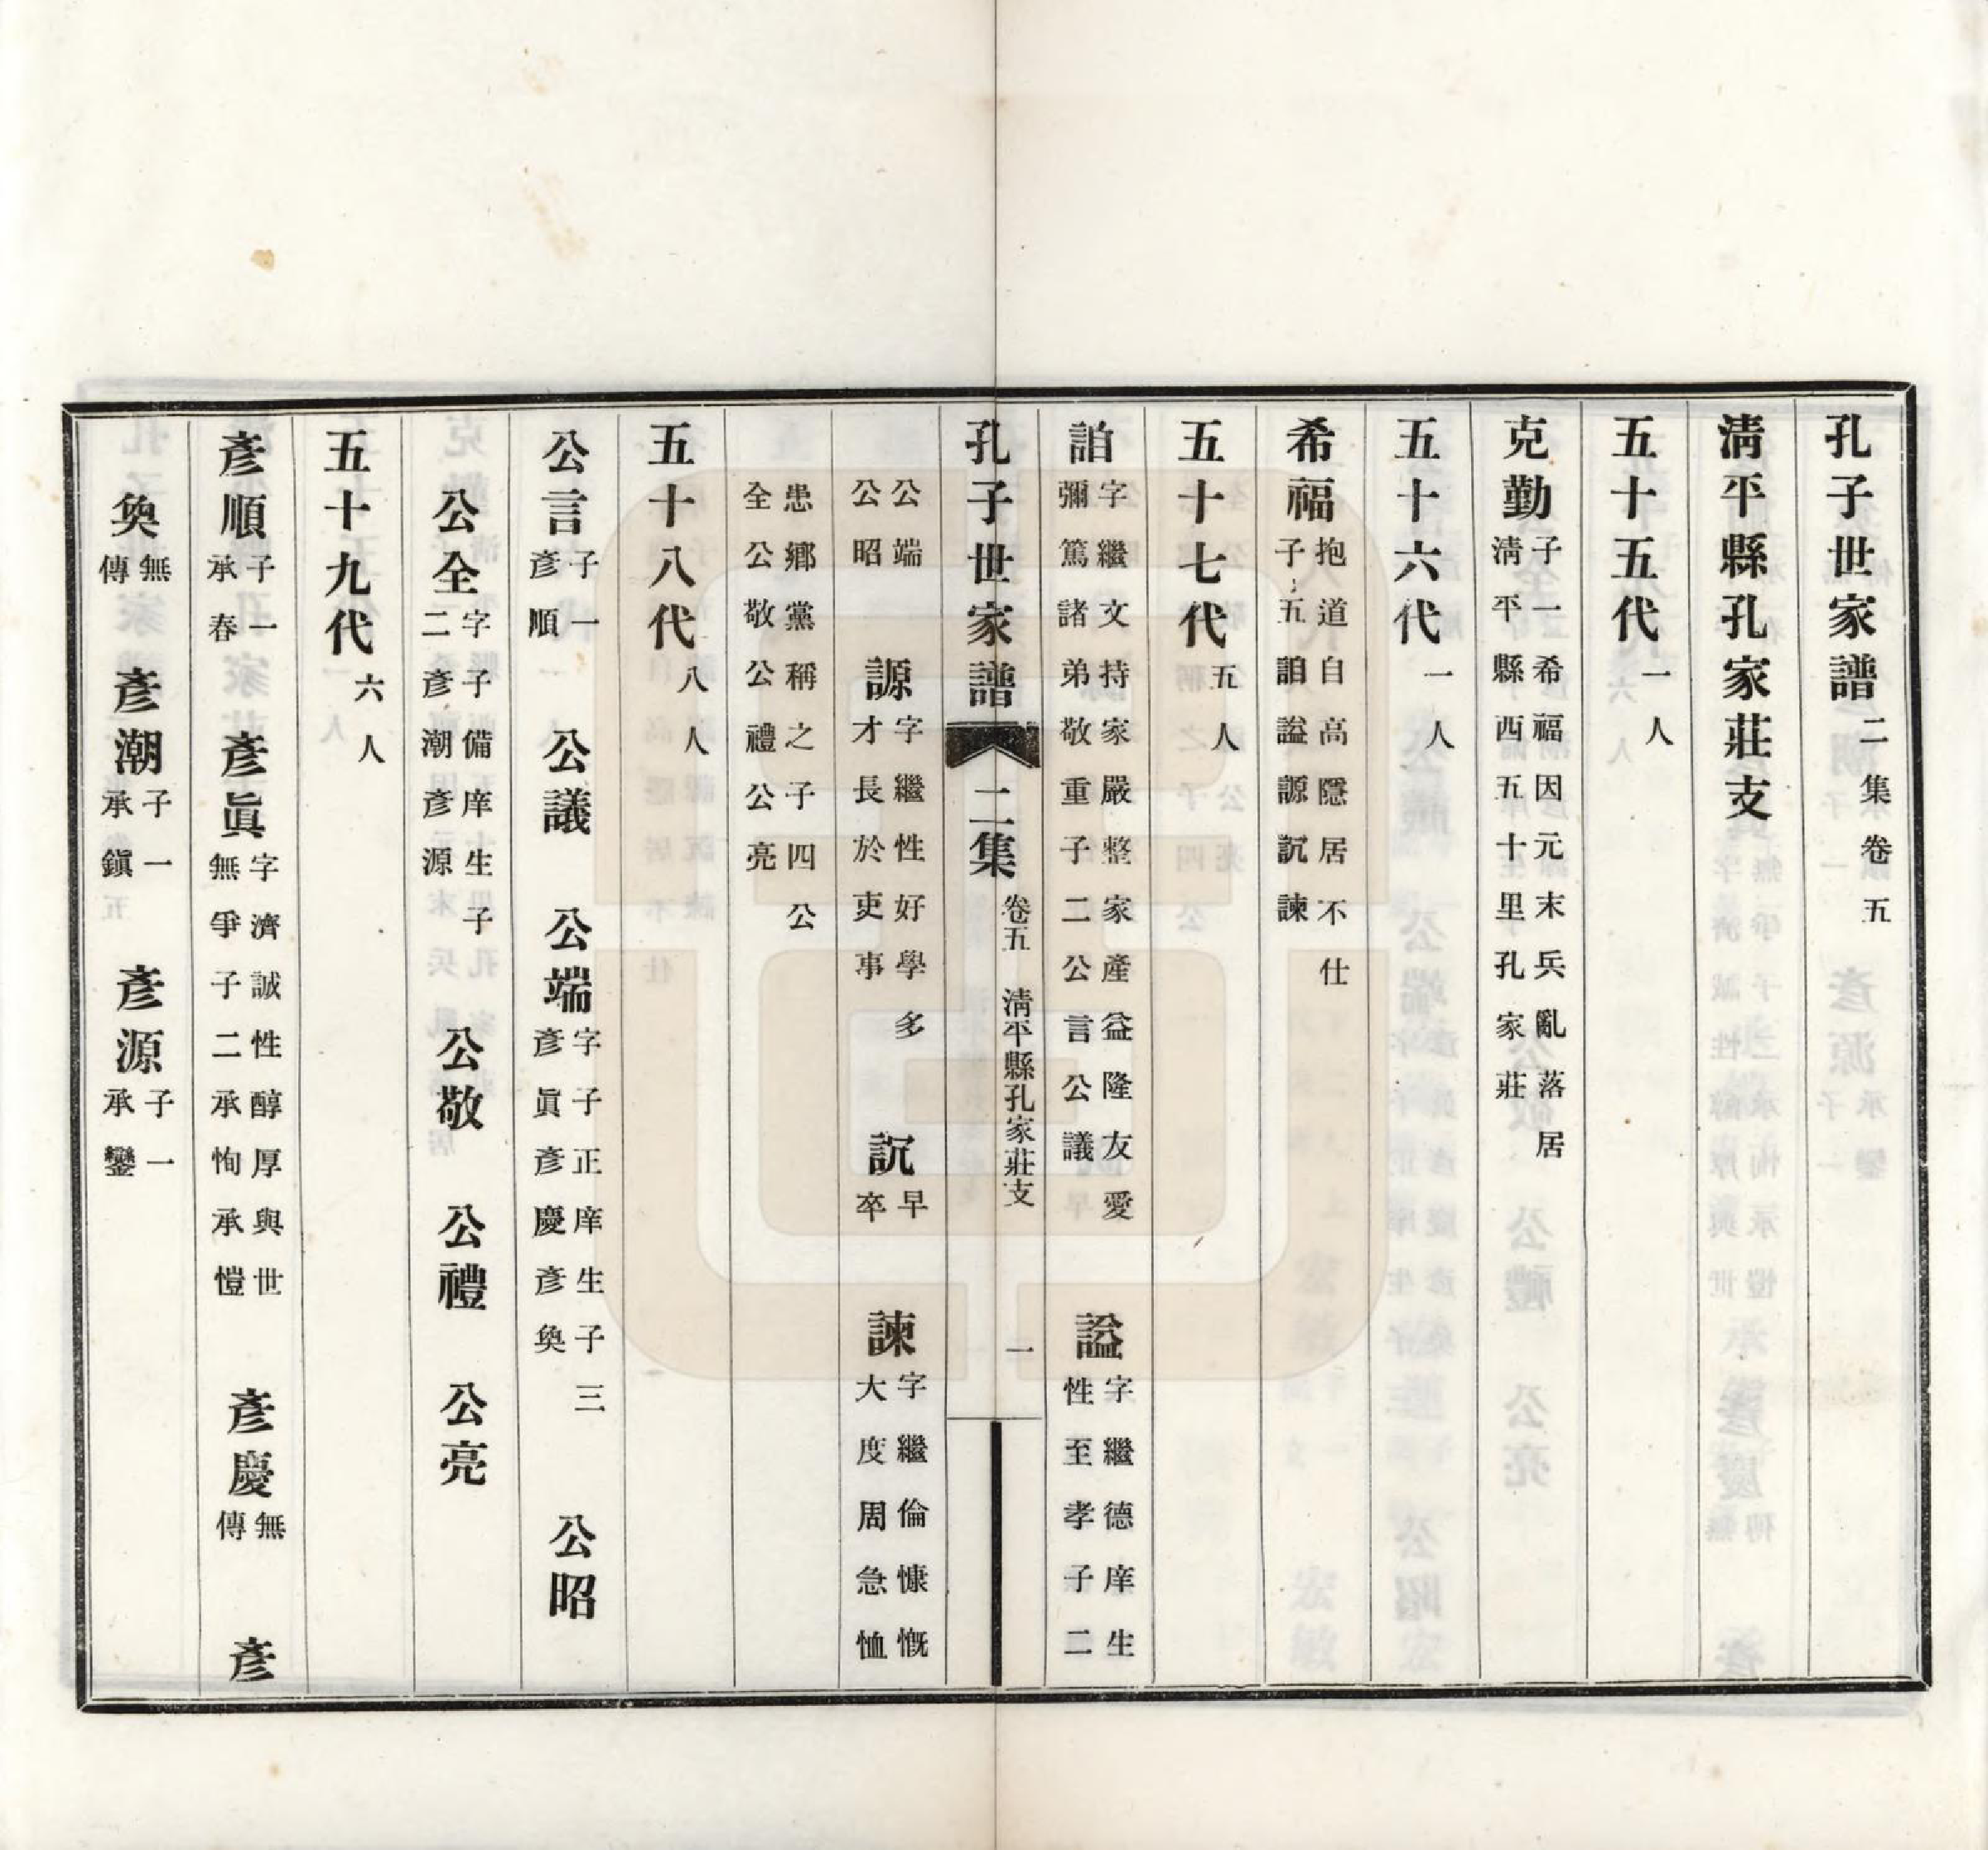 孔子世家譜二集卷五
淸平縣孔家莊支
五十五代一人
克勤子一希福因元末兵亂落居淸平縣西五十里孔家莊
五十六代一人
希福抱道自高隱居不仕子五詯謚謜訉諫
五十七代五人
詯字繼文持家嚴整家產益隆友愛彌篤諸弟敬重子二公言公議 謚字繼德庠生性至孝子二
孔子世家譜 二集 卷五 淸平縣孔家莊支 一
公端公昭 謜字繼性好學多才長於吏事 訉早卒 諫字繼倫慷慨大度周急恤
患鄉黨稱之子四公全公敬公禮公亮
五十八代八人
公言子一彥順 公議 公端字子正庠生子三彥眞彥慶彥奐 公昭
公全字子備庠生子二彥潮彥源 公敬 公禮 公亮
五十九代六人
彥順子一承春 彥眞字濟誠性醇厚與世無爭子二承恂承愷 彥慶無傳 彥
奐無傳 彥潮子一承鎭 彥源子一承鑾